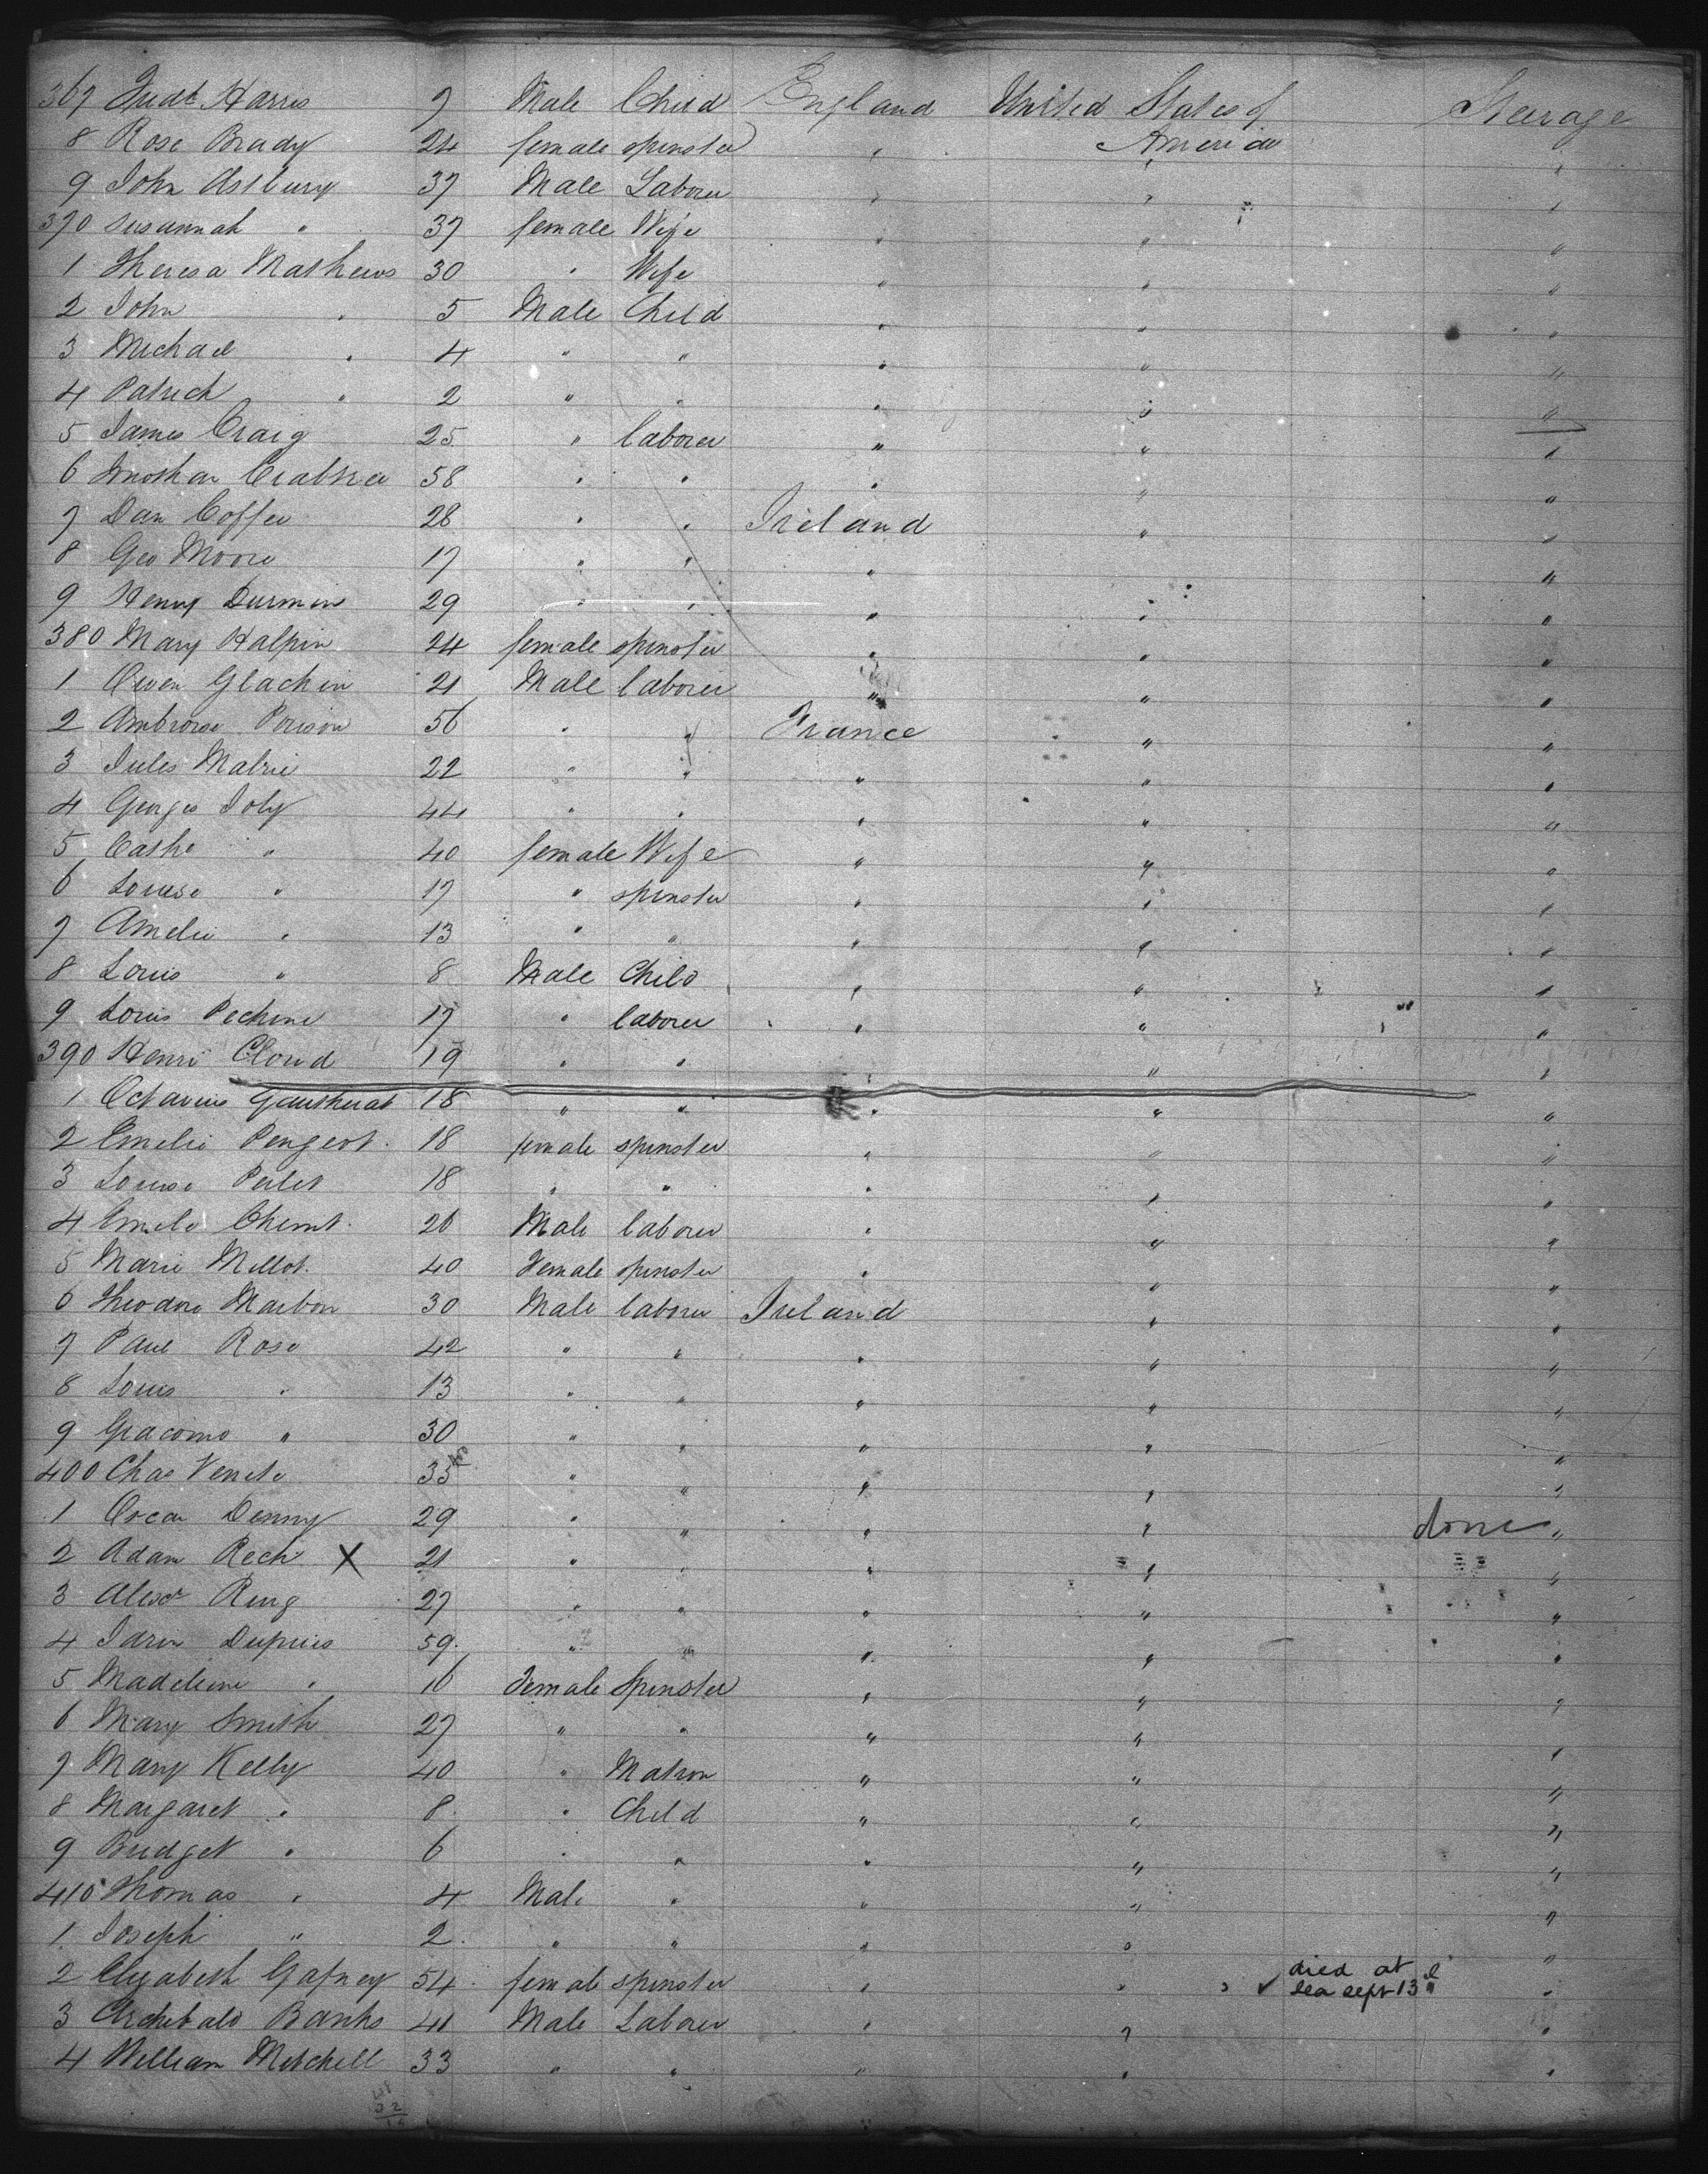 367 Fredk Harris 7 Male Child England United States of Steerage
8 Rose Brady 24 female spinster " America "
9 John Astbury 37 Male Laborer " " "
370 Susannah " 37 female Wife " " "
1 Theresa Mathews 30 " Wife " " "
2 John " 5 Male Child " " "
3 Michael " 4 " " " " "
4 Patrick " 2 " " " " "
5 James Craig 25 " laborer " " "
6 Crabtree 58 " " " " "
7 Dan Coffee 28 " " Ireland " "
8 Geo Moore 17 " " " " "
9 Henry Durmin 29 " " " " "
380 Mary Halpin 24 female spinster " " "
1 Owen Glackin 21 Male laborer " " "
2 Ambroise Poison 56 " " France " "
3 Jules Malrie 22 " " " " "
4 Georges Joly 44 " " " " "
5 Cathe " 40 female Wife " " "
6 Louise " 17 " spinster " " "
7 Amelie " 13 " " " " "
8 Louis " 8 Male Child " " "
9 Louis Pechine 17 " laborer " " "
390 Henri Cloud 19 " " " " "
1 Octavius Gautherat 18 " " " " "
2 Emelie Peugeot 18 female spinster " " "
3 Louise Perlet 18 " " " " "
4 Emile 26 Male laborer " " "
5 Marie Millot 40 Female spinster " " "
6 Theodore Maibon 30 Male laborer Ireland " "
7 Paul Rose 42 " " " " "
8 Louis " 13 " " " " "
9 Giacomo " 30 " " " " "
400 Chas Venete 35 " " " " "
1 Oscar Denny 29 " " " " done "
2 Adam Rech X 21 " " " " "
3 Alexr Ring 27 " " " " "
4 Dupuis 59 " " " " "
5 Madeleine " 16 Female Spinster " " "
6 Mary Smith 27 " " " " "
7 Mary Kelly 40 " Matron " " "
8 Margaret " 8 " Child " " "
9 Bridget " 6 " " " " "
410 Thomas " 4 Male " " " "
1 Joseph " 2 " " " " "
2 Elizabeth Gafney 54 female spinster " " ✓ died at sea sept 13 "
3 Archibald Banks 41 Male Laborer " " "
4 William Mitchell 33 " " " " "